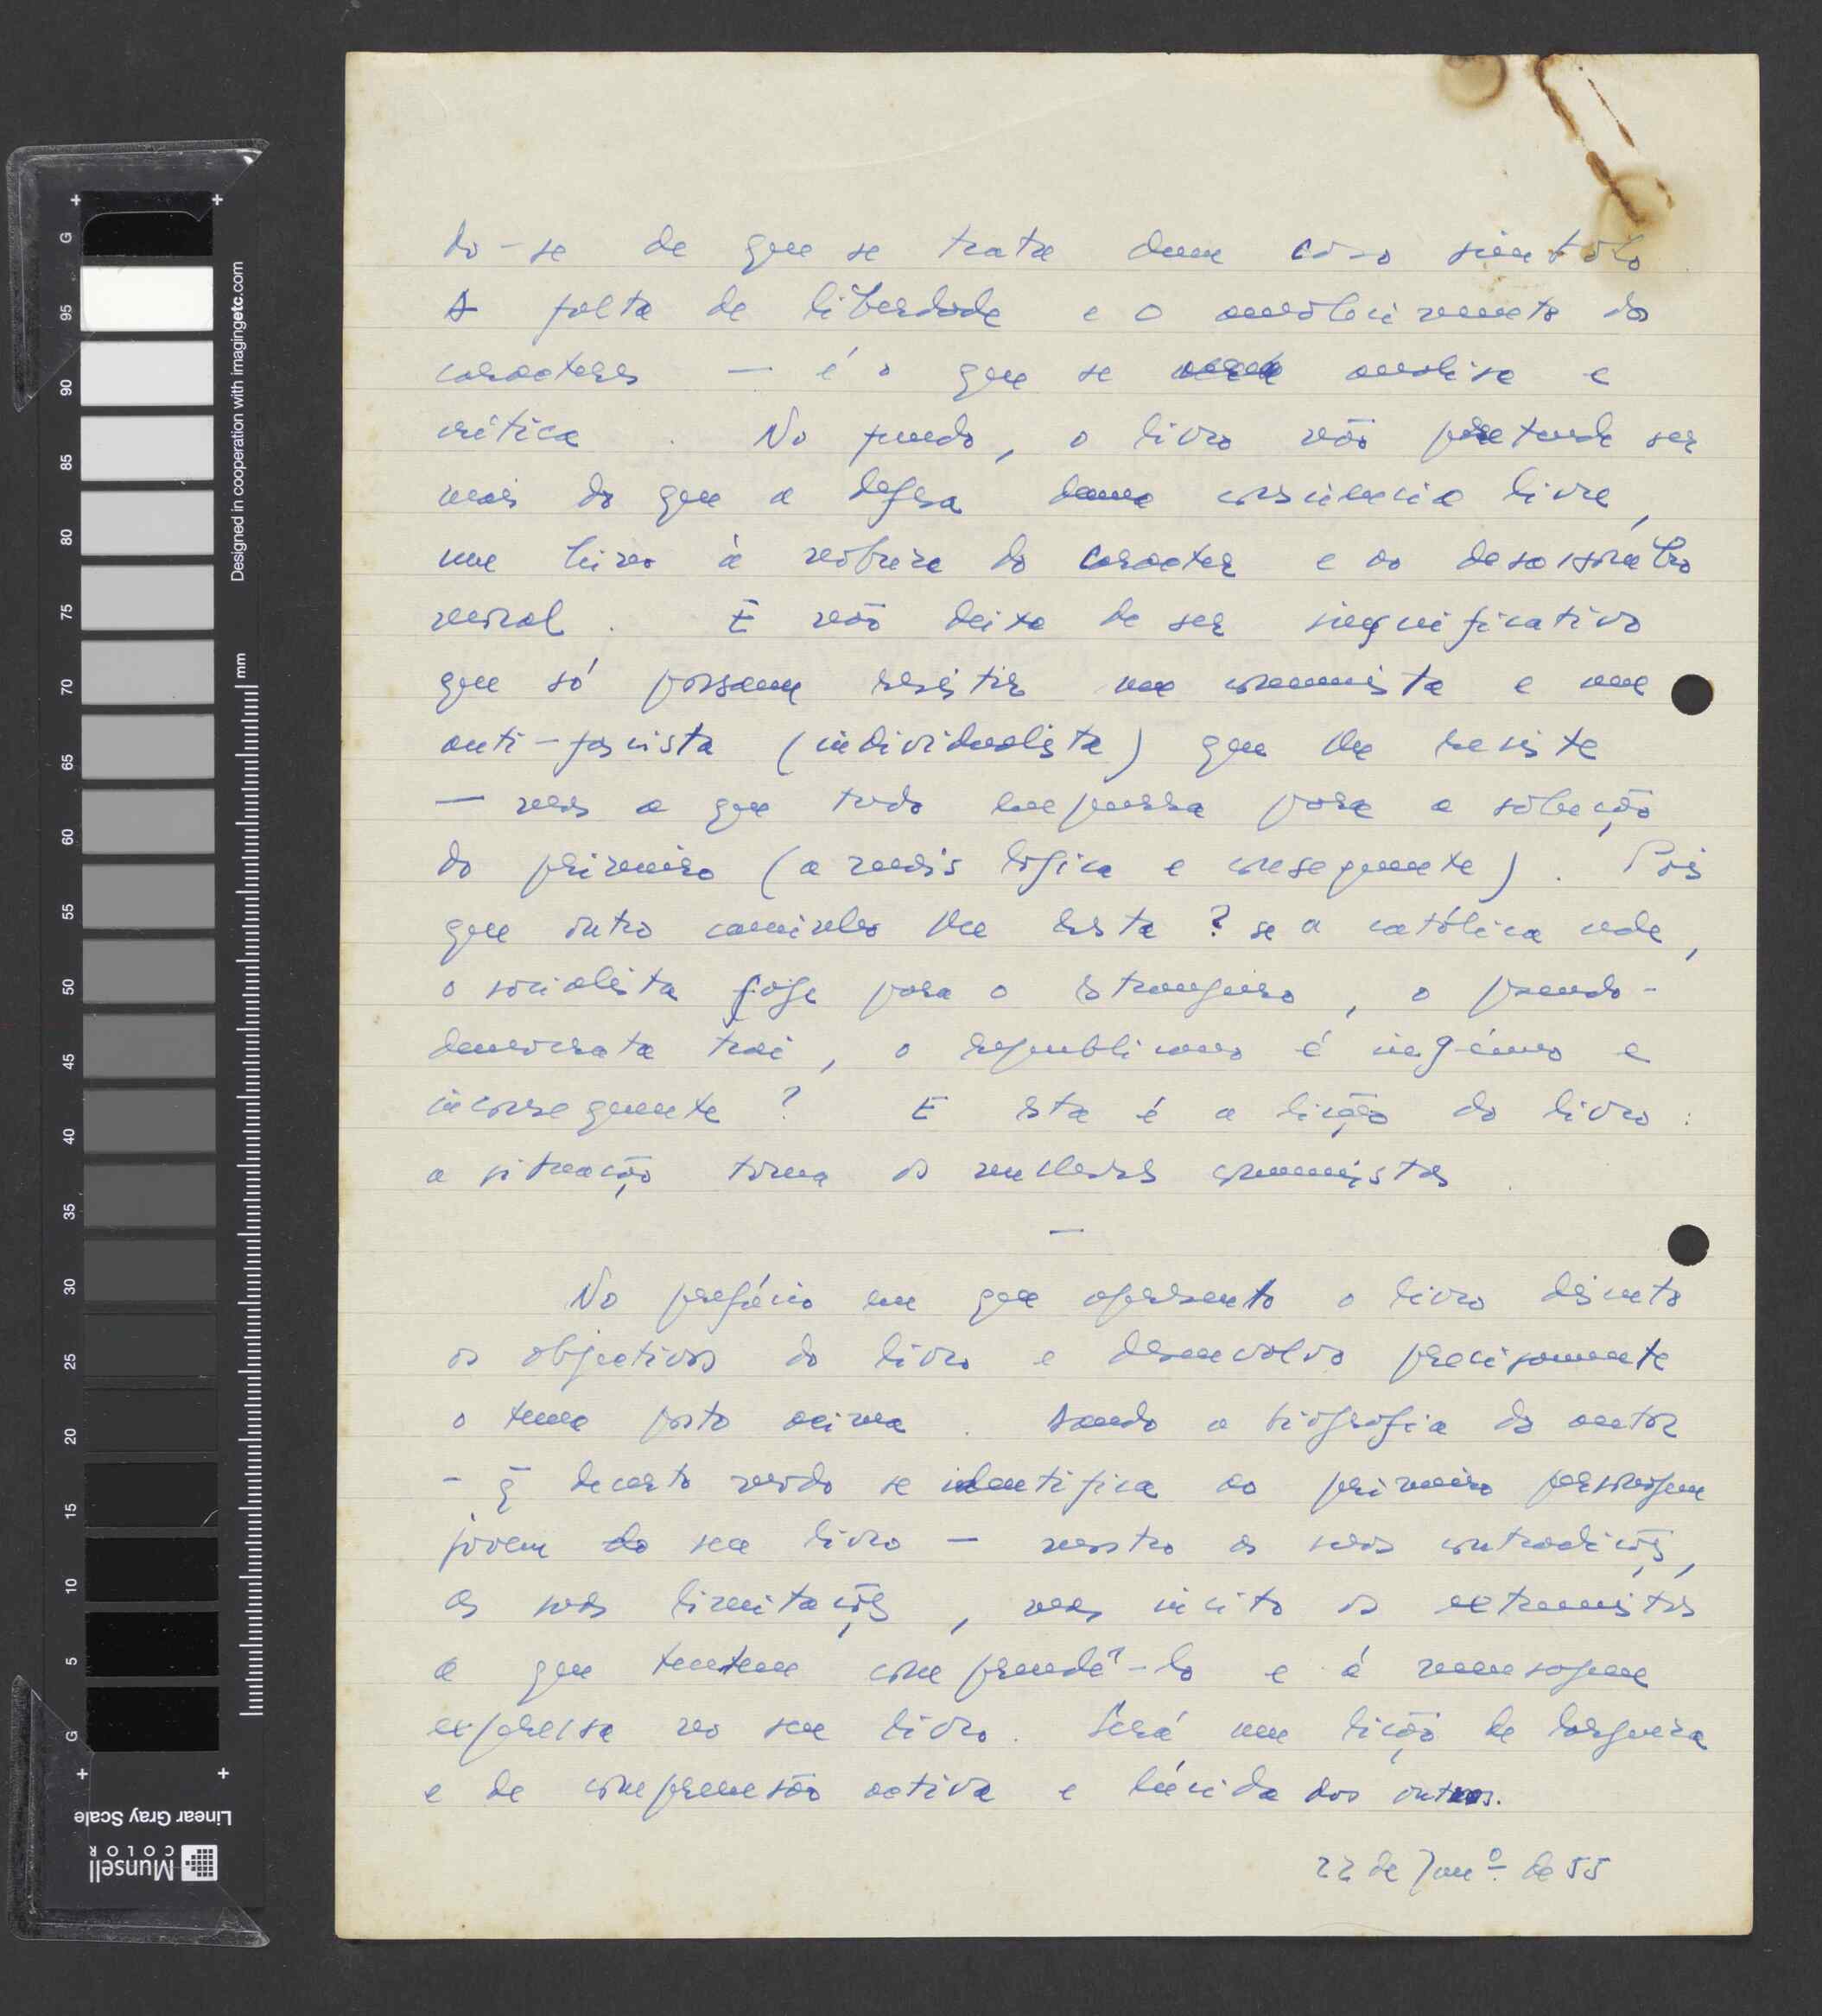 do-se de que se trata dum caso simbólo
A falta de liberdade e o amolecimento dos
caracteres — é o que se analisa e
critica. No fundo, o livro não pretende ser
mais do que a defesa duma consciencia livre,
um hino à nobreza do caracter e ao desassombro
moral. E não deixa de ser significativo
que só possam resistir um comunista e um
anti-fascista (individualista) que lhe resiste
— mas a que tudo empurra para a solução
do primeiro (a mais lógica e consequente). Pois
que outro caminho lhe resta? se a católica cede,
o socialista foge para o estrangeiro, o pseudo-
democrata trai, o republicano é ingénuo e
inconsequente? E esta é a lição do livro:
a situação torna os melhores comunistas.
—
No prefácio em que apresento o livro discuto
os objectivos do livro e desenvolvo precisamente
o tema posto acima. Dando a biografia do autor
- q̃ decerto modo se identifica ao primeiro personagem
jovem do seu livro — mostro as suas contradições,
as suas limitações, mas incito os extremistas
a que tentem compreendê-lo e à mensagem
expressa no seu livro. Será uma lição de largueza
e de compreensão activa e lúcida dos outros.
22 de Janº. de 55
+ +
G
95
90
85
80
75
70
65
60
55
50
45
40
35
30
25
20
15
10
5
G
+ +
Designed in cooperation with imagingetc.com
mm
Linear Gray Scale
Munsell
COLOR